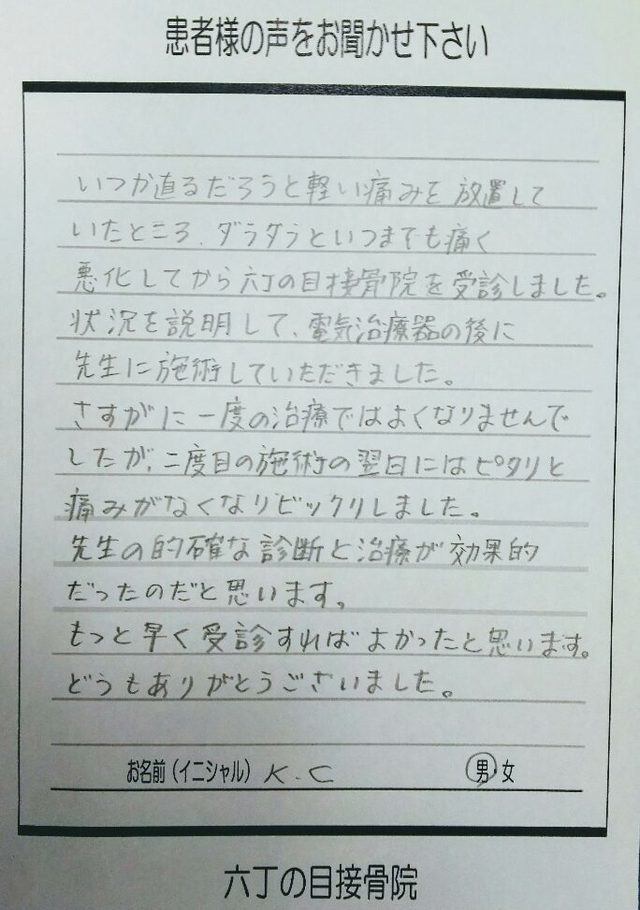 患者様の声をお聞かせ下さい
いつか直るだろうと軽い痛みを放置して
いたところ、ダラダラといつまでも痛く
悪化してから六丁の目接骨院を受診しました。
状況を説明して、電気治療器の後に
先生に施術していただきました。
さすがに一度の治療ではよくなりませんで
したが、二度目の施術の翌日にはピタリと
痛みがなくなりビックリしました。
先生の的確な診断と治療が効果的
だったのだと思います。
もっと早く受診すればよかったと思います。
どうもありがとうございました。
お名前(イニシャル) K.C 男・女
六丁の目接骨院